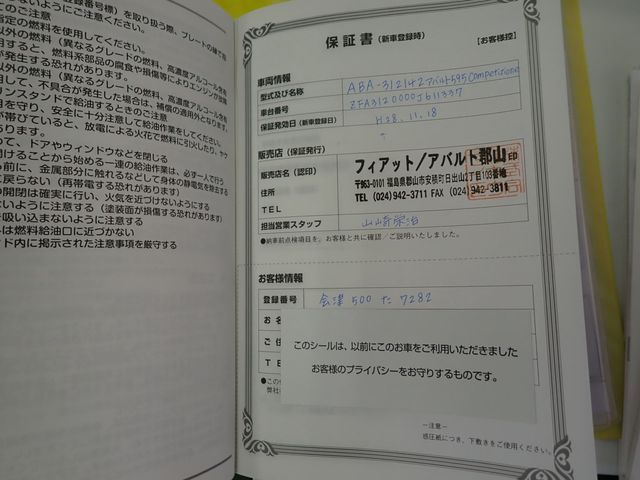 登録番号標）を取り扱う際、プレートの縁で
ないようにご注意ください。
指定の燃料を使用してください。
以外の燃料（異なるグレードの燃料、高濃度アルコール含有
用すると、燃料系部品の腐食や損傷等によりエンジンが故障
する恐れがあります。
以外の燃料（異なるグレードの燃料、高濃度アルコール含有
して、不具合が発生した場合は、補償の適用外となります。
リンスタンドで給油するときのご注意
目を守り、安全に十分注意して給油作業をしてください。
が帯びていると、放電による火花で燃料に引火したり、やケ
あります。
って、ドアやウィンドウなどを閉じる
開けることから始める一連の給油作業は、必ず一人で行う
る前に、金属部分に触れるなどして身体の静電気を除去する
に戻らない（再帯電する恐れがあります）
の開閉は確実に行い、火気を近づけないようにする
ないように注意する（塗装面が損傷する恐れがあります）
を吸い込まないように注意する
は燃料給油口に近づかない
ンド内に掲示された注意事項を厳守する
保証書（新車登録時）
【お客様控】
車両情報
型式及び名称 ABA-312142 アバルト595 Competizione
車台番号 ZFA3120000J611337
保証発効日（新車登録日） H28.11.18
販売店（保証発行）
販売店名（認印） フィアット/アバルト郡山 印
住所 〒963-0101 福島県郡山市安積町日出山2丁目103番地
TEL TEL (024) 942-3711 FAX (024) 942-3811
担当営業スタッフ 山崎栄治
●納車前点検項目を、お客様と共に確認／ご説明いたしました。
お客様情報
登録番号 会津 500 た 7282
お名
ご住
TE
このシールは、以前にこのお車をご利用いただきました
お客様のプライバシーをお守りするものです。
●この
弊社
－注意－
感圧紙につき、下敷きをご使用ください。